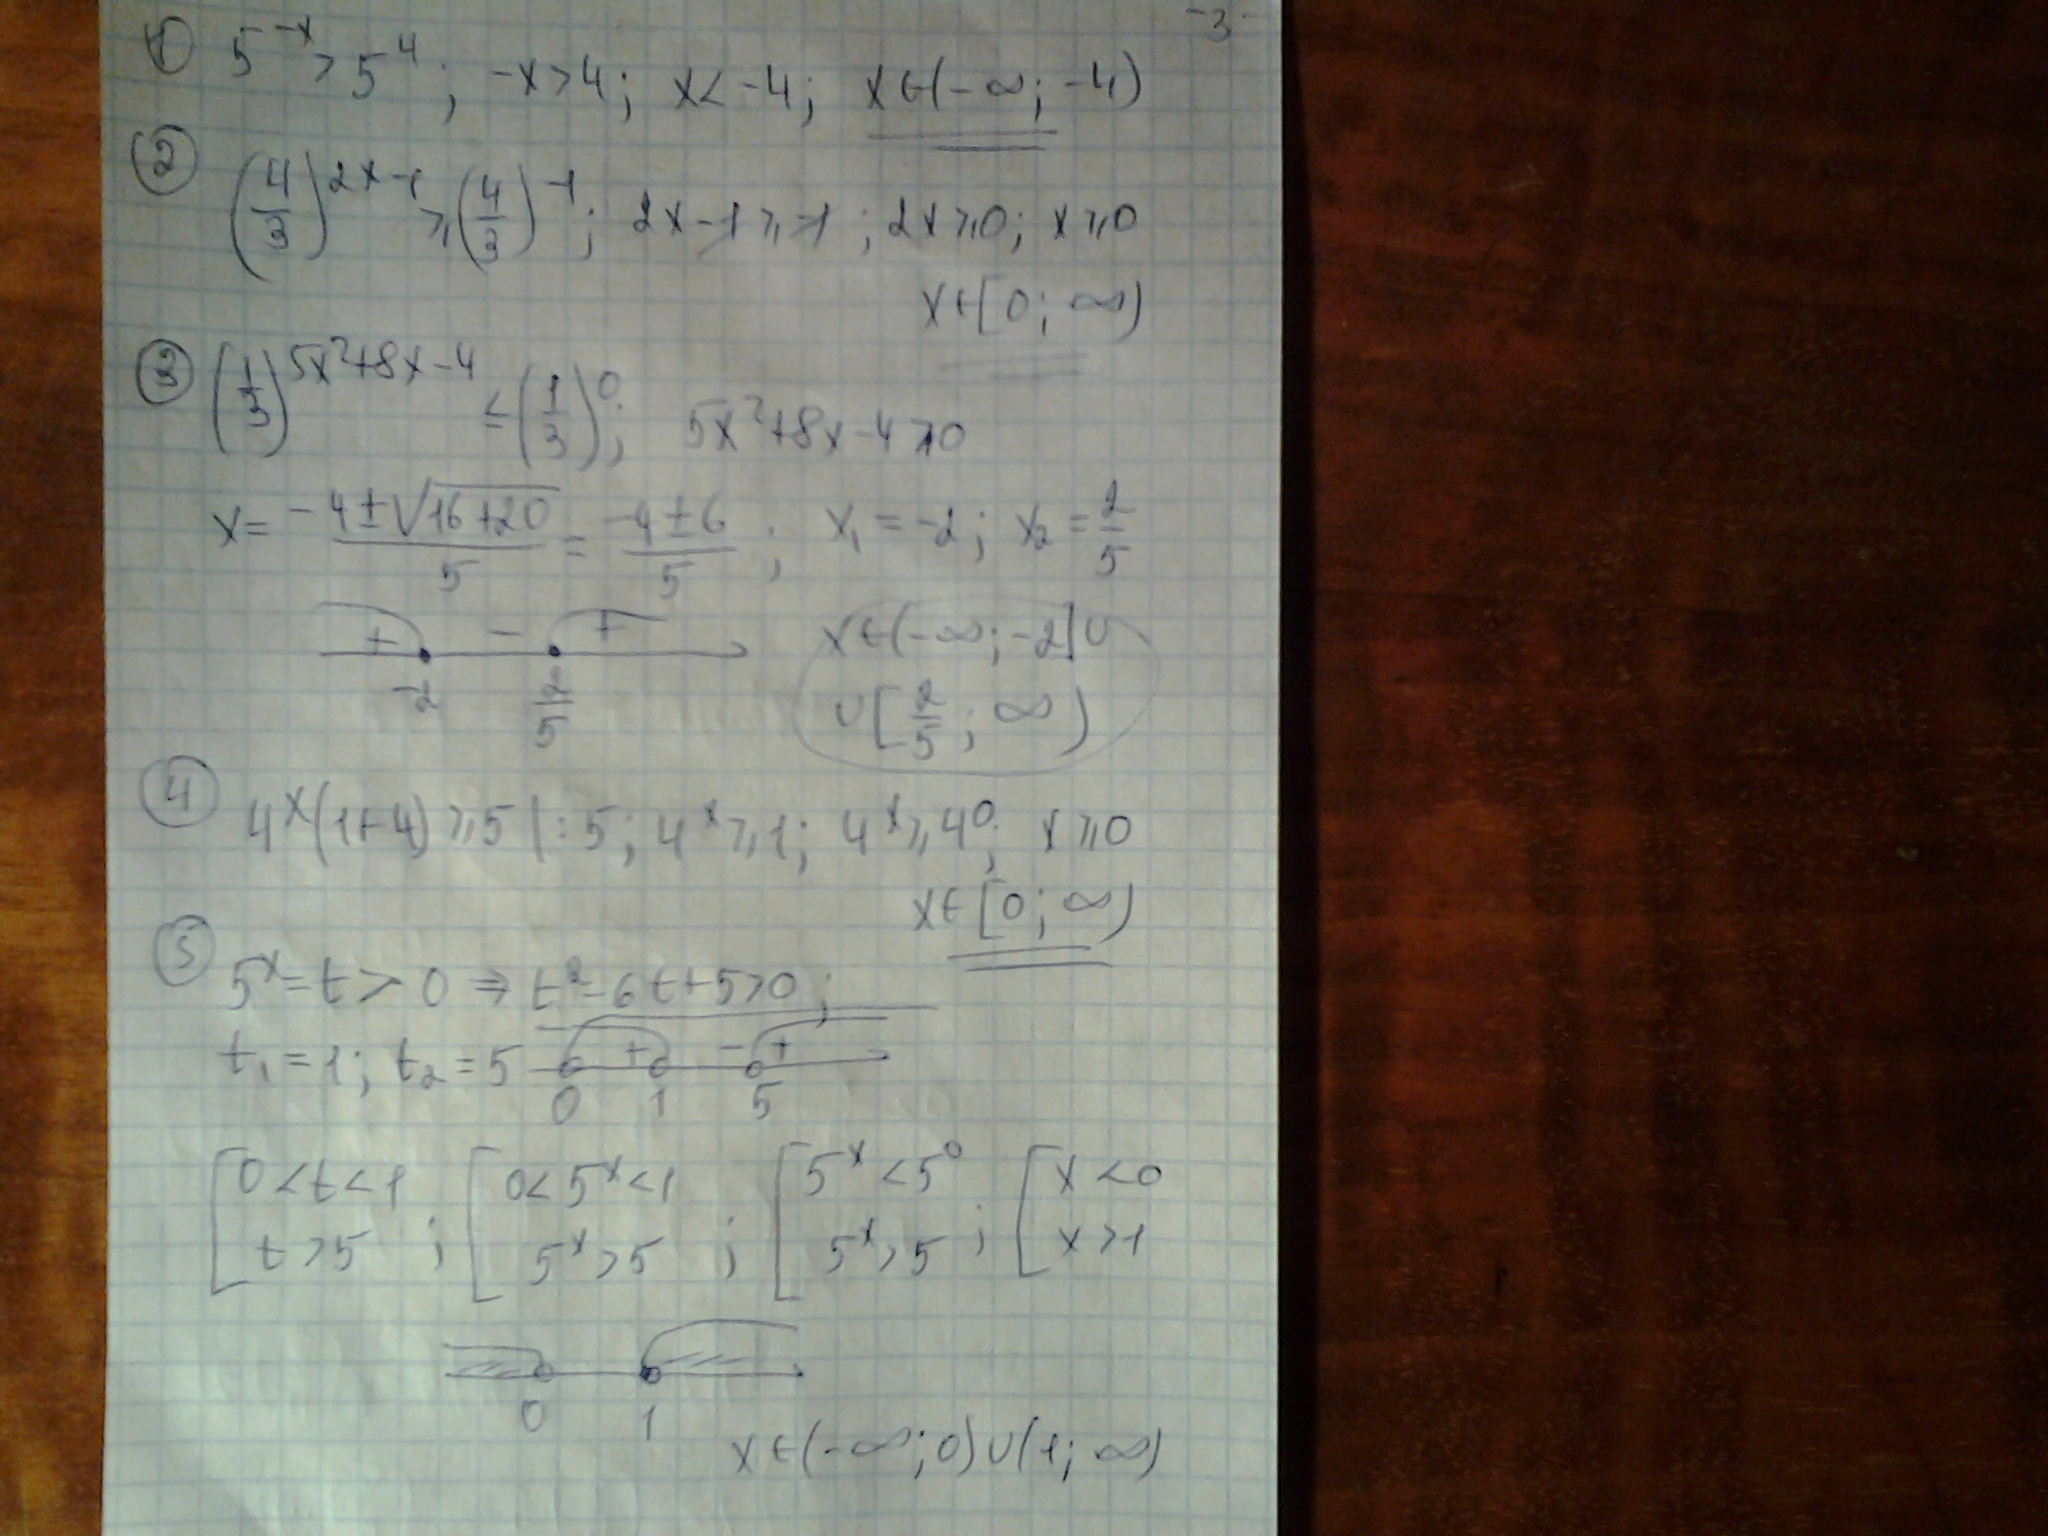 -3-
① 5^{-x} > 5^4; -x>4; x<-4; x∈(-∞; -4)
② (4/3)^{2x-1} ⩾ (4/3)^{-1}; 2x-1⩾-1; 2x⩾0; x⩾0
x∈[0; ∞)
③ (1/3)^{5x²+8x-4} ≤ (1/3)^0; 5x²+8x-4⩾0
x = (-4±√(16+20))/5 = (-4±6)/5; x₁=-2; x₂=2/5
+ - + x∈(-∞; -2]∪
-2 2/5 ∪[2/5; ∞)
④ 4^x(1+4)⩾5 |:5; 4^x⩾1; 4^x⩾4^0; x⩾0
x∈[0; ∞)
⑤ 5^x=t>0 ⇒ t²-6t+5>0;
t₁=1; t₂=5 + - +
0 1 5
[0<t<1 ; [0<5^x<1 ; [5^x<5^0 ; [x<0
t>5 5^x>5 5^x>5 x>1
0 1
x∈(-∞; 0)∪(1; ∞)